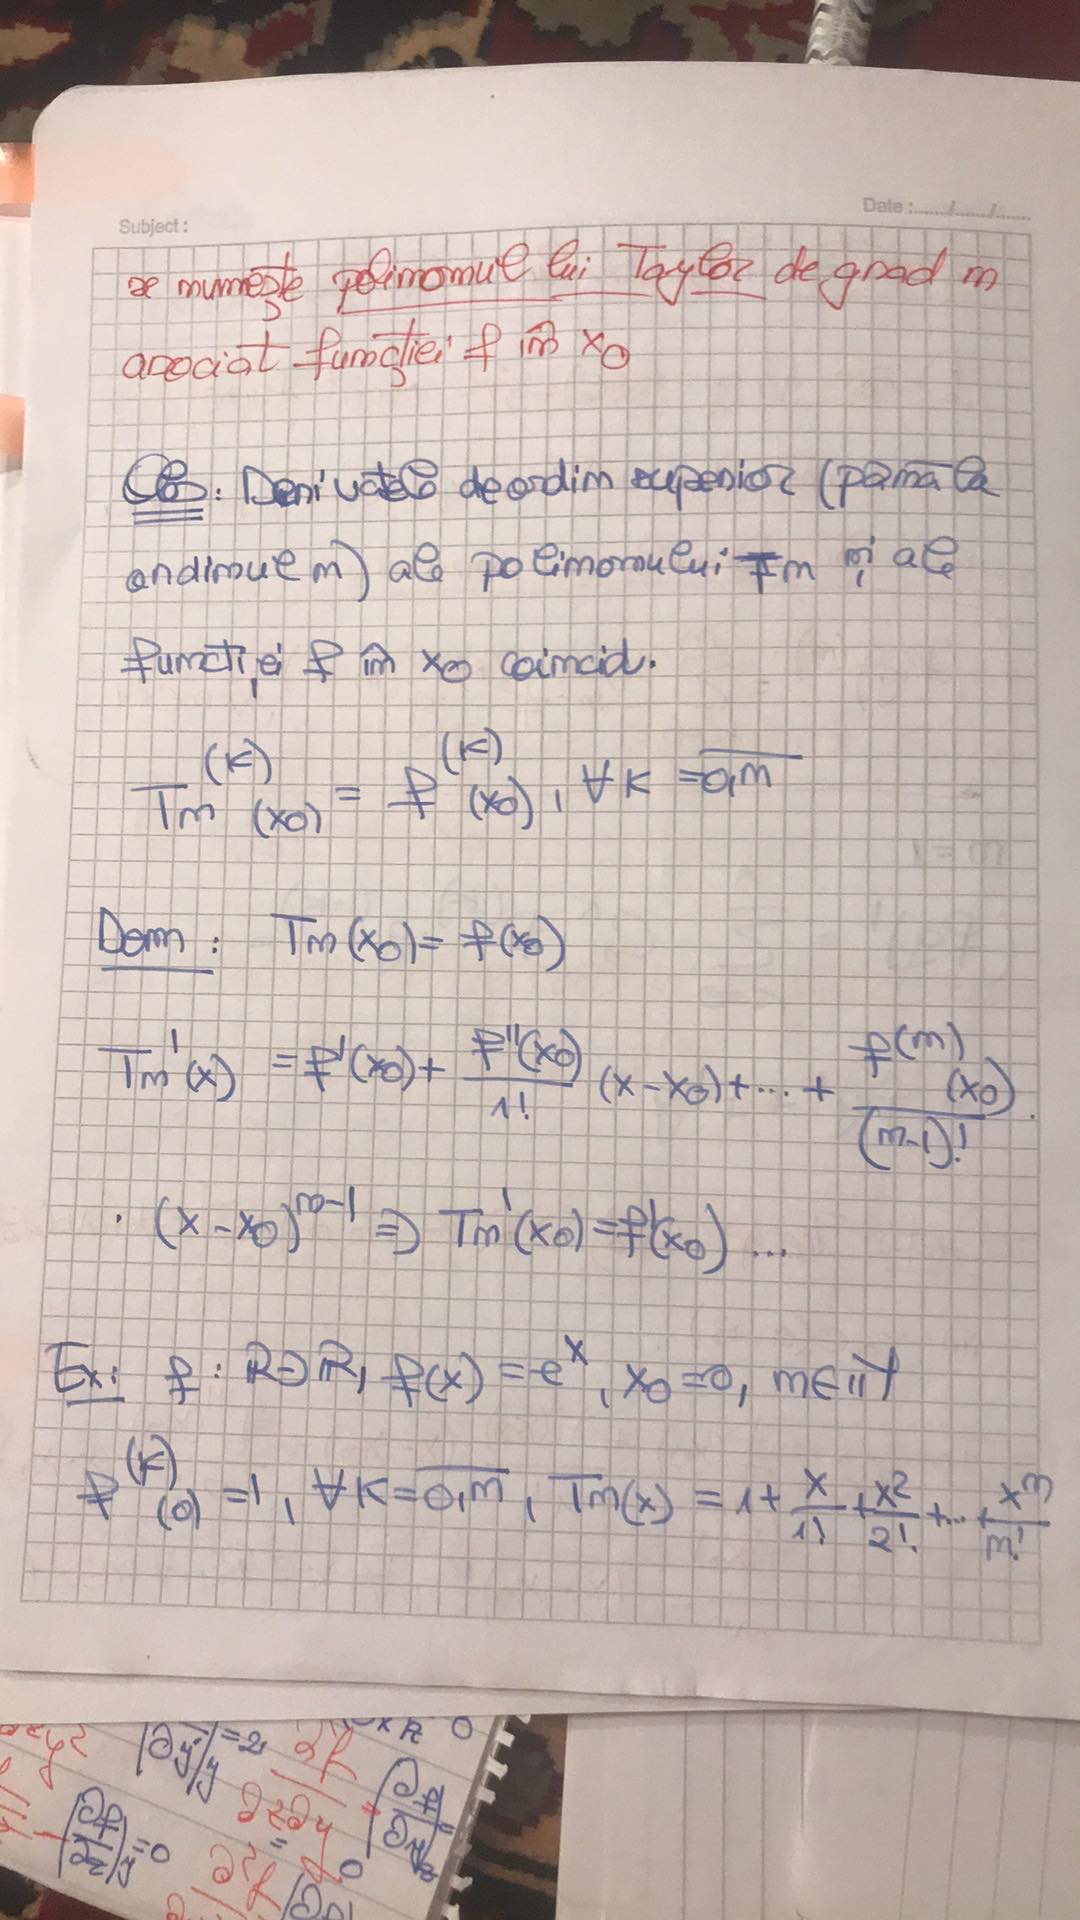 Subject:
Date :....../....../......
se numește polinomul lui Taylor de grad n
asociat funcției f în x0
Obs: Derivatele de ordin superior (pana la
ordinul n) ale polinomului Tn și ale
funcției f în x0 coincid.
Tn^(k)(x0) = f^(k)(x0), ∀k = \overline{0,n}
Dem: Tn(x0) = f(x0)
Tn'(x) = f'(x0) + f''(x0)/1! (x-x0) + ... + f^(n)(x0)/(n-1)! .
· (x-x0)^(n-1) ⇒ Tn'(x0) = f'(x0) ...
Ex: f: R→R, f(x) = e^x, x0=0, n∈N
f^(k)(0) = 1, ∀k = \overline{0,n}, Tn(x) = 1 + x/1! + x^2/2! + ... + x^n/n!